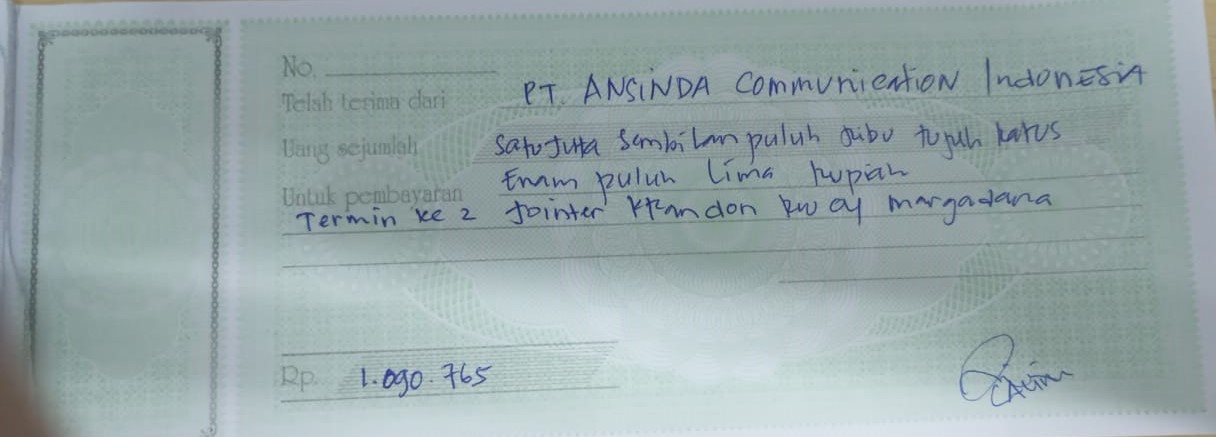 No.
Telah terima dari PT. ANSINDA Communication Indonesia
Uang sejumlah Satu Juta Sembilan puluh Ribu tujuh Ratus
Enam puluh Lima Rupiah
Untuk pembayaran
Termin ke 2 Jointer Krandon RW 04 margadana
Rp. 1.090.765